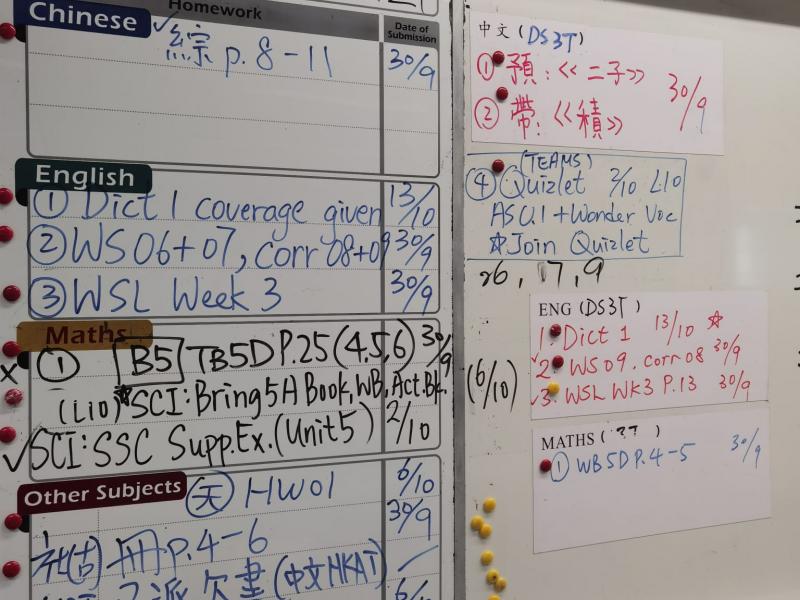 Chinese
Homework
Date of Submission
✓綜 p. 8-11 30/9
English
① Dict 1 coverage given 13/10
② WS 06+07, Corr 08+09 30/9
③ WSL Week 3 30/9
Maths
× ① B5 TB5D P.25 (4,5,6) 30/9
(L10) ☆SCI: Bring 5A Book, WB, Act.Bk. (6/10)
✓SCI: SSC Supp.Ex. (Unit 5) 2/10
Other Subjects
天 HW01 6/10
冊 p.4-6 30/9
(中文HKAT)
6/
中文 (DS3T)
① 預:<<二子>> 30/9
② 帶:<<積>>
(TEAMS)
④ Quizlet 2/10 L10
ASU1 + Wonder Voc
☆Join Quizlet
26, 17, 9
ENG (DS3T)
1. Dict 1 13/10 ☆
✓2. WS 09. corr 08 30/9
✓3. WSL WK3 P.13 30/9
MATHS (
① WB 5D P.4-5 30/9